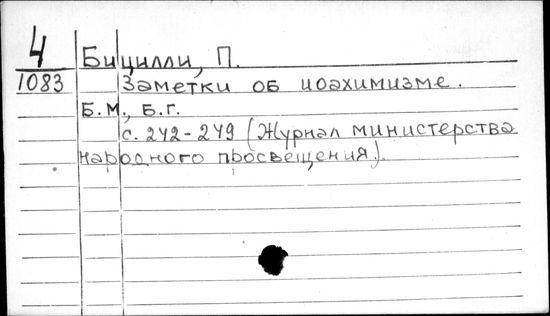 4 Бицилли, П.
1083 Заметки об иоахимизме.
Б.М., Б.Г.
с. 242-279 (Журнал министерства
народного просвещения).